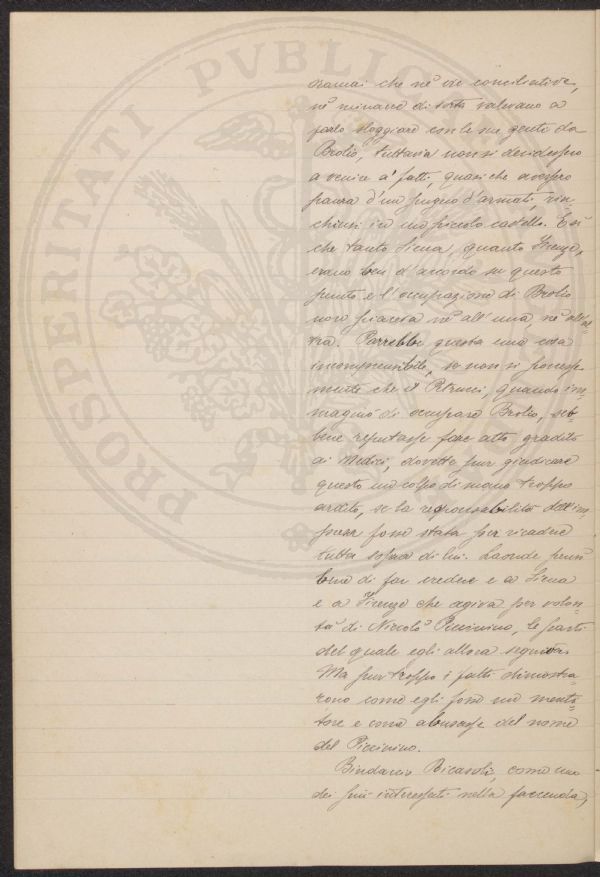 oramai che nè vie conciliative,
nè minacce di sorta valevano a
farlo sloggiare con le sue genti da
Brolio, tuttavia non si decidessero
a venire a' fatti, quasi che avessero
paura d'un pugno d'armati, rin=
chiusi in un piccolo castello. E sì
che tanto Siena, quanto Firenze,
erano ben d'accordo su questo
punto e l'occupazione di Brolio
non piaceva nè all'una, nè all'al
tra. Parrebbe questa una cosa
incomprensibile, se non si ponesse
mente che il Petrucci, quando im=
maginò di occupare Brolio, seb=
bene reputasse fare atto gradito
ai Medici, dovette pur giudicare
questo un colpo di mano troppo
ardito, se la responsabilità dell'im=
presa fosse stata per ricadere
tutta sopra di lui. Laonde pensò
bene di far credere e a Siena
e a Firenze che agiva per volon=
tà di Niccolò Piccinino, le parti
del quale egli allora seguiva.
Ma pur troppo i fatti dimostra=
rono come egli fosse un menti=
tore e come abusasse del nome
del Piccinino.
Bindaccio Ricasoli, come uno
dei più interessati nella faccenda,
PROSPERITATI PVBLICAE